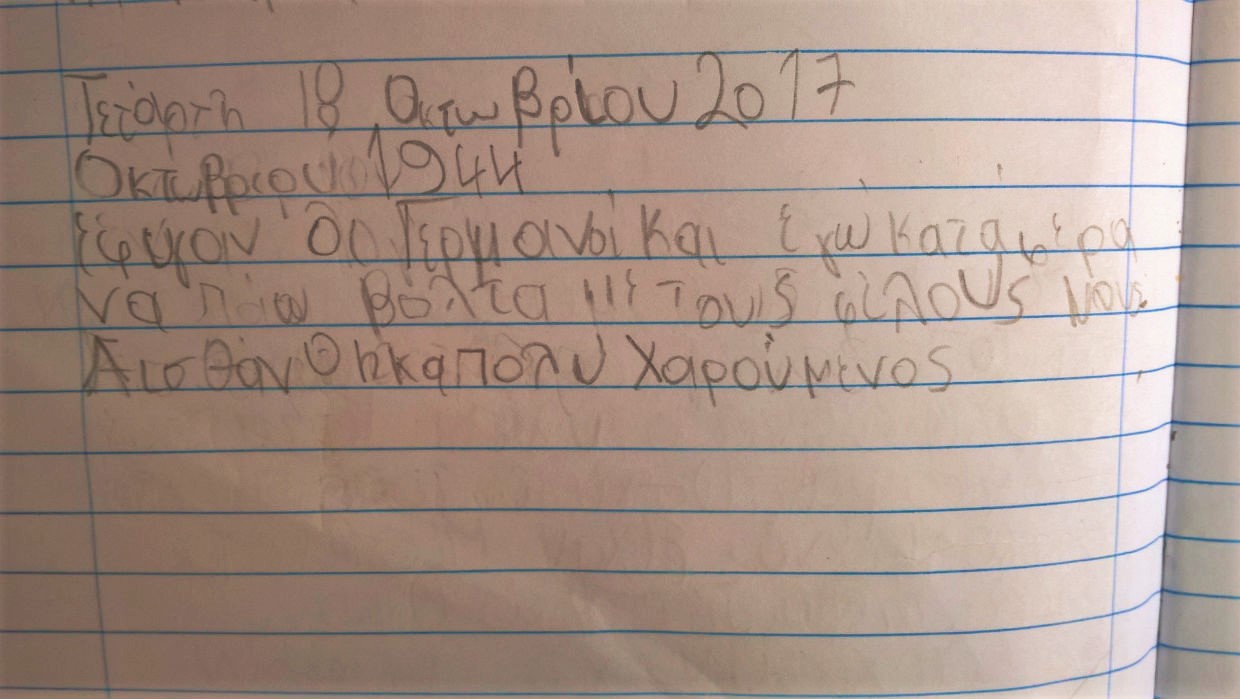 Τετάρτη 18 Οκτωβρίου 2017
Οκτωβριου 1944
Έφυγαν οι Γερμανοί και έγω καταφέρα
να πάω βόλτα με τους φίλους μου
Αισθάνθηκα πολυ χαρούμενος